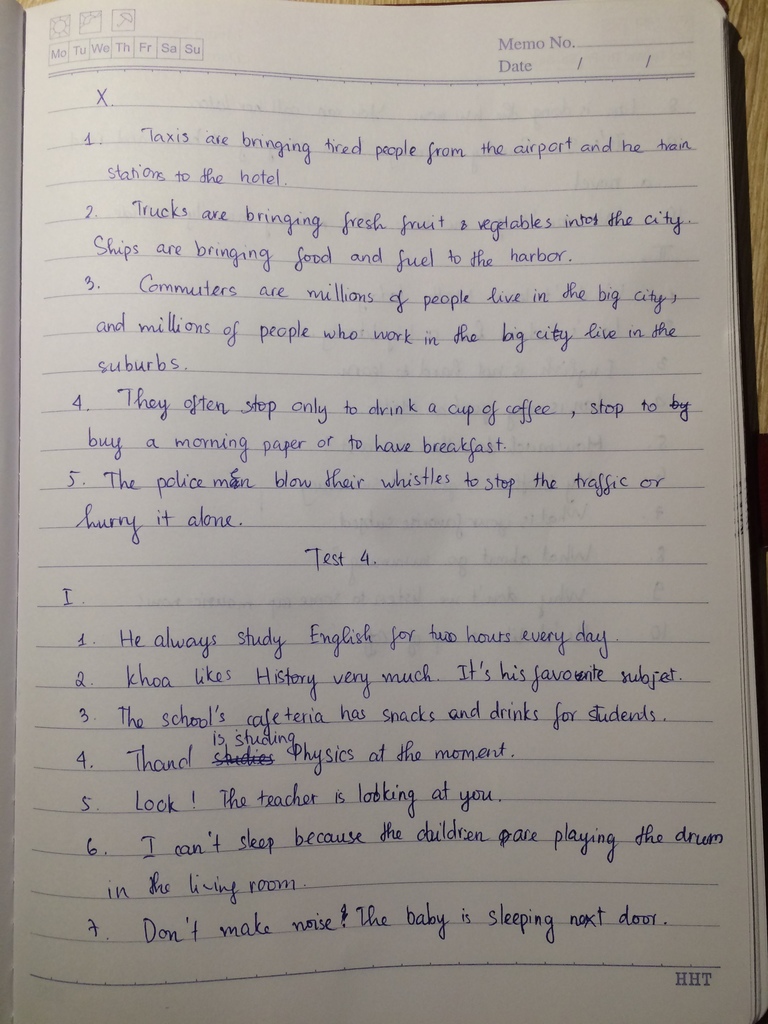 Mo Tu We Th Fr Sa Su
Memo No.
Date / /
X.
1. Taxis are bringing tired people from the airport and he train
stations to the hotel.
2. Trucks are bringing fresh fruit & vegetables into the city.
Ships are bringing food and fuel to the harbor.
3. Commuters are millions of people live in the big city,
and millions of people who work in the big city live in the
suburbs.
4. They often stop only to drink a cup of coffee, stop to
buy a morning paper or to have breakfast.
5. The police men blow their whistles to stop the traffic or
hurry it alone.
Test 4.
I.
1. He always study English for two hours every day.
2. Khoa likes History very much. It's his favourite subjet.
3. The school's cafeteria has snacks and drinks for students.
is studing
4. Thand studies Physics at the moment.
5. Look! The teacher is looking at you.
6. I can't sleep because the children are playing the drum
in the living room.
7. Don't make noise! The baby is sleeping next door.
HHT